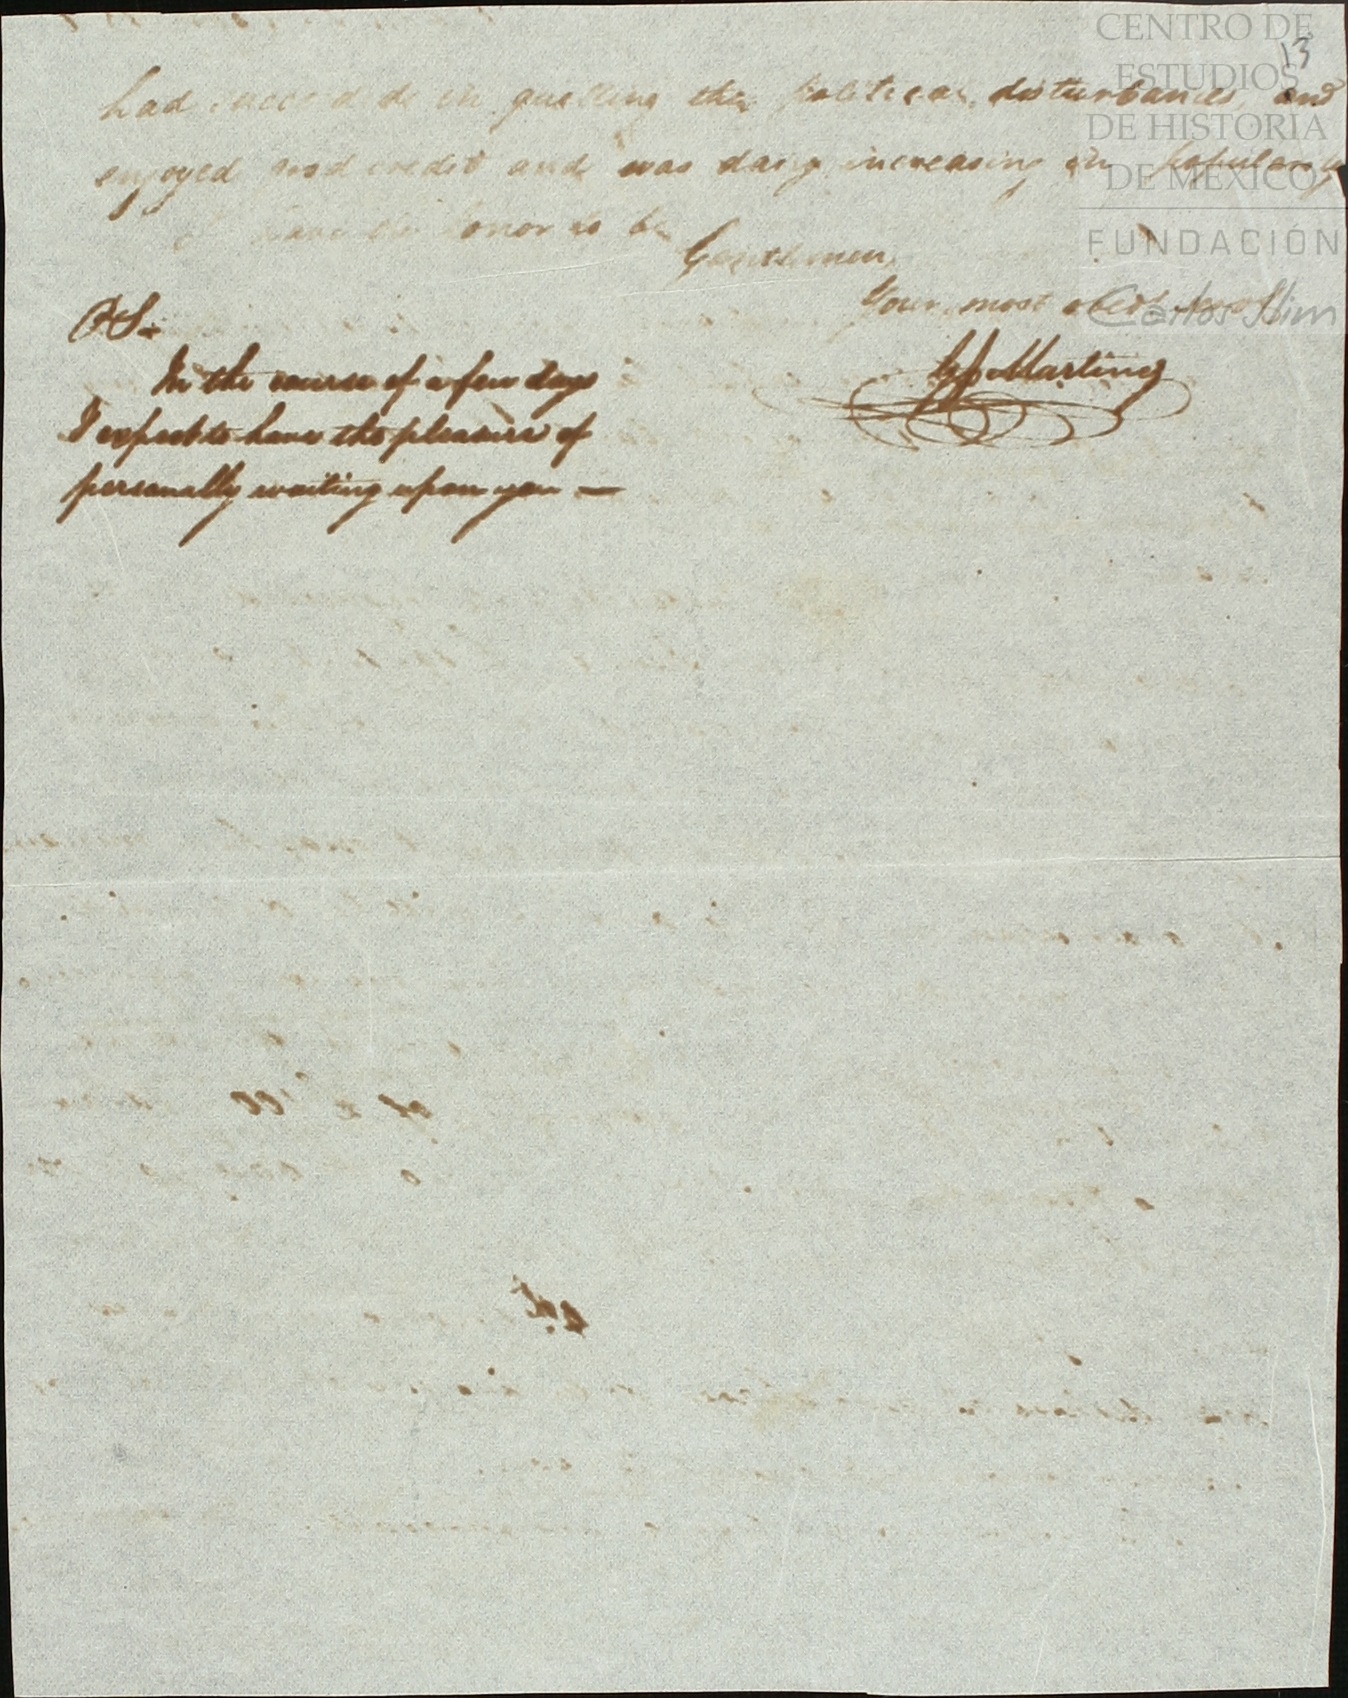 CENTRO DE
ESTUDIOS
DE HISTORIA
DE MÉXICO
FUNDACIÓN
Carlos Slim
13
had succeeded in quelling the political disturbances, and
enjoyed good credit and was daily increasing in popularity
I have the honor to be
Gentlemen,
Your most obdt
PS.
In the course of a few days
I expect to have the pleasure of
personally waiting upon you —
Martinez